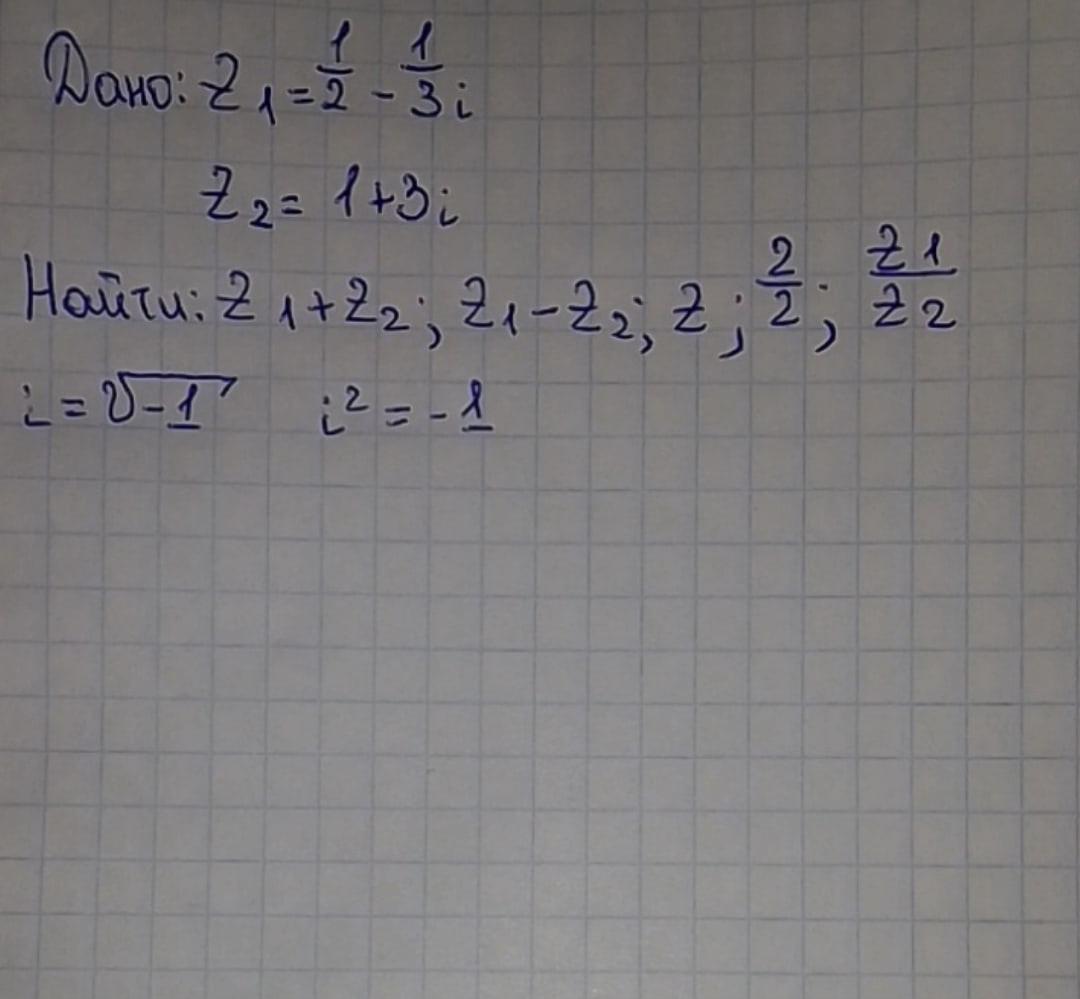 Дано: z₁ = 1/2 - 1/3 i
z₂ = 1+3i
Найти: z₁+z₂; z₁-z₂; z; 2/2; z1/z2
i = √-1 i² = -1